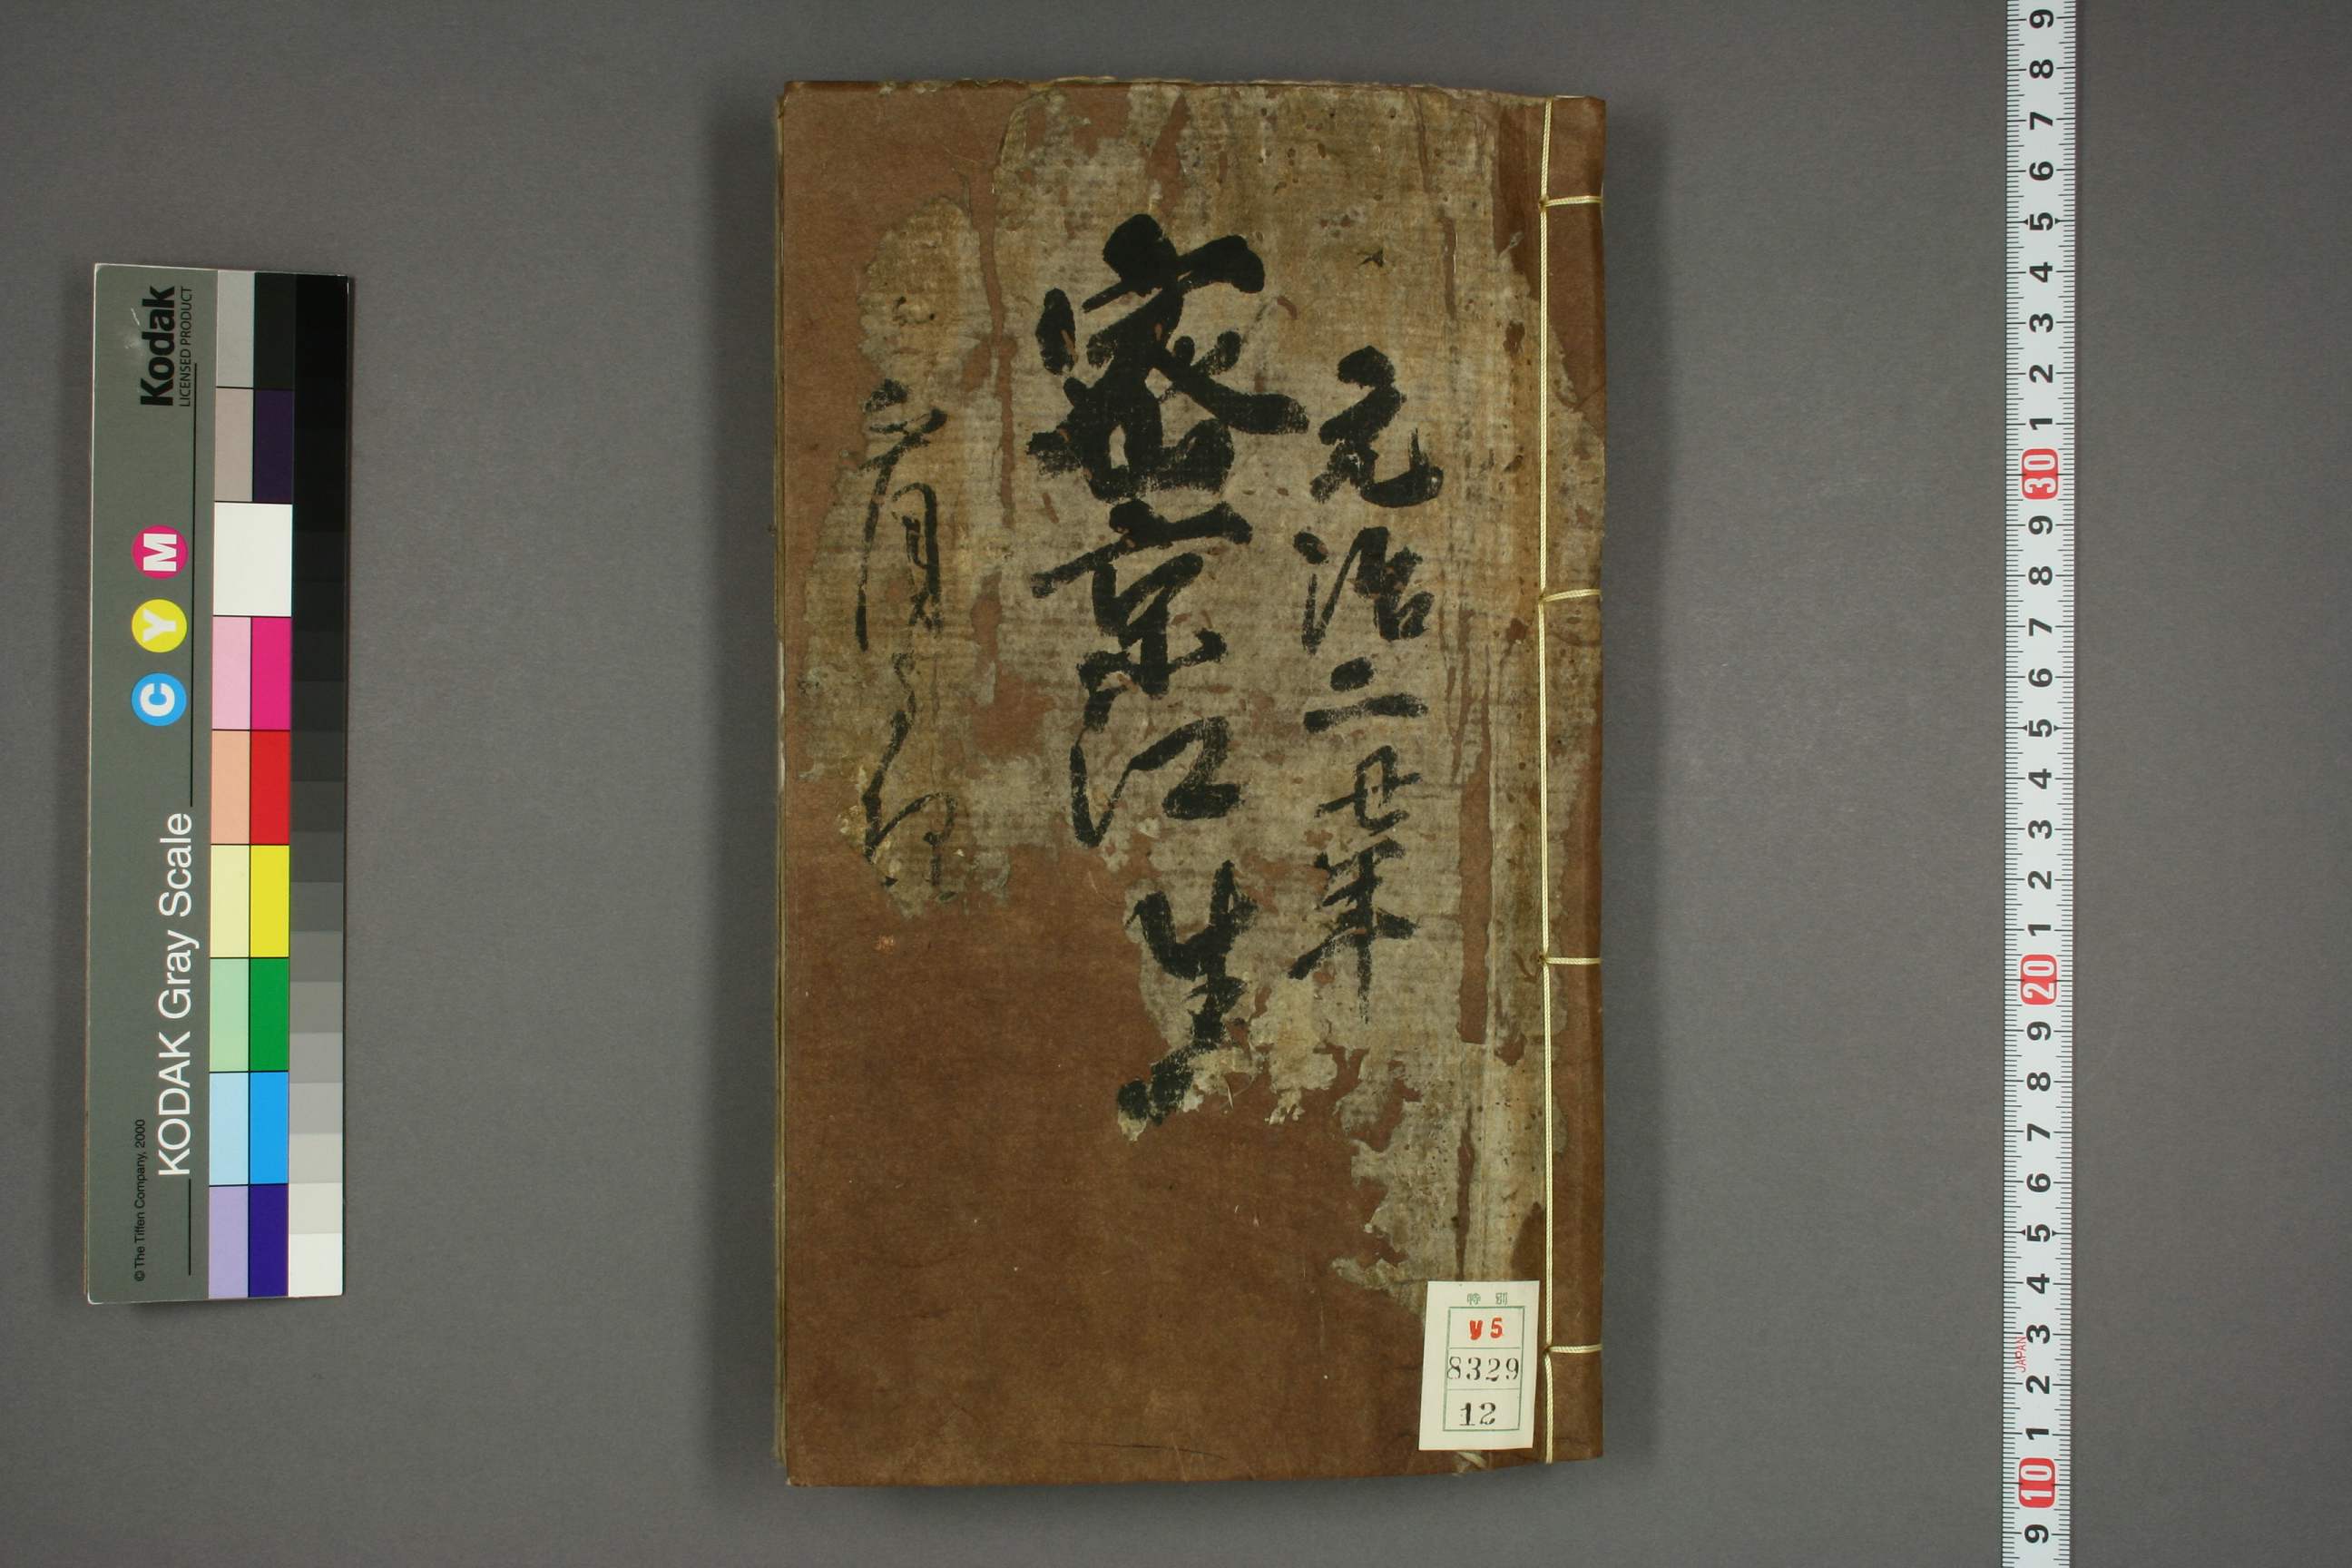 元治二丑年
密京江
生
正月ゟ
特別
ツ5
8329
12
Kodak
LICENSED PRODUCT
C Y M
KODAK Gray Scale
© The Tiffen Company, 2000
9
8
7
6
5
4
3
2
1
30
9
8
7
6
5
4
3
2
1
20
9
8
7
6
5
4
3
JAPAN
2
1
10
9